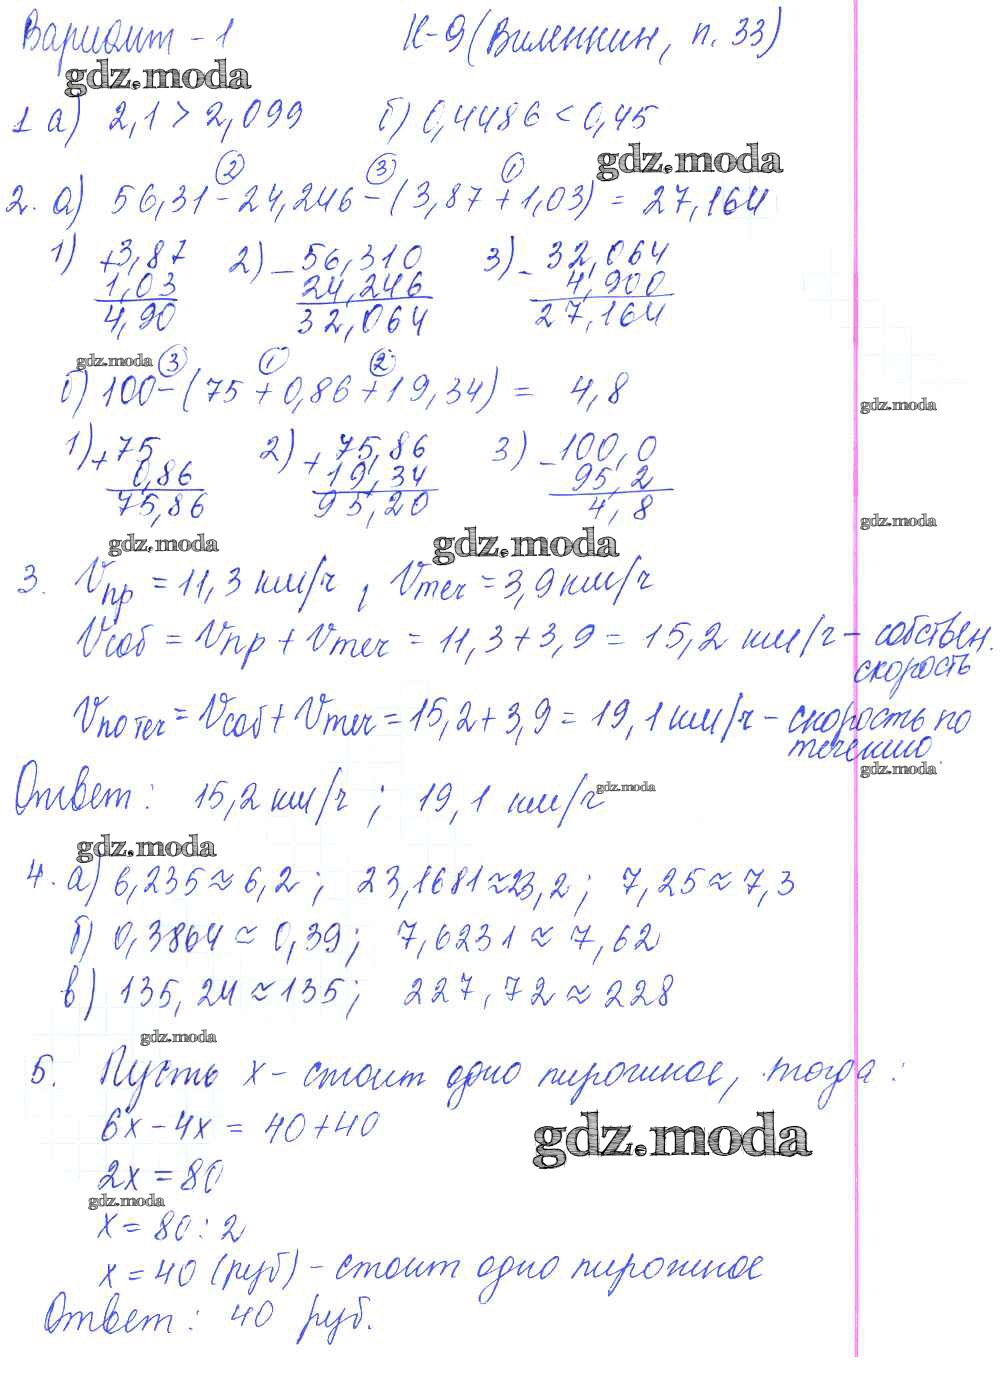 Вариант - 1 К-9 (Виленкин, п. 33)
gdz.moda
1 а) 2,1 > 2,099 б) 0,4486 < 0,45
gdz.moda
② ③ ①
2. а) 56,31 - 24,246 - (3,87 + 1,03) = 27,164
1) +3,87 2) -56,310 3) -32,064
1,03 24,246 4,900
4,90 32,064 27,164
gdz.moda ③ ① ②
б) 100 - (75 + 0,86 + 19,34) = 4,8
gdz.moda
1) +75 2) +75,86 3) -100,0
0,86 19,34 95,2
75,86 95,20 4,8
gdz.moda
gdz.moda gdz.moda
3. Vпр = 11,3 км/ч, Vтеч = 3,9 км/ч
Vсоб = Vпр + Vтеч = 11,3 + 3,9 = 15,2 км/ч - собствен.
скорость
Vпо теч = Vсоб + Vтеч = 15,2 + 3,9 = 19,1 км/ч - скорость по
течению
gdz.moda
Ответ: 15,2 км/ч; 19,1 км/ч
gdz.moda
gdz.moda
4. а) 6,235 ≈ 6,2; 23,1681 ≈ 23,2; 7,25 ≈ 7,3
б) 0,3864 ≈ 0,39; 7,6231 ≈ 7,62
в) 135,24 ≈ 135; 227,72 ≈ 228
gdz.moda
5. Пусть x - стоит одно пирожное, тогда:
6x - 4x = 40 + 40
gdz.moda
2x = 80
gdz.moda
x = 80 : 2
x = 40 (руб) - стоит одно пирожное
Ответ: 40 руб.